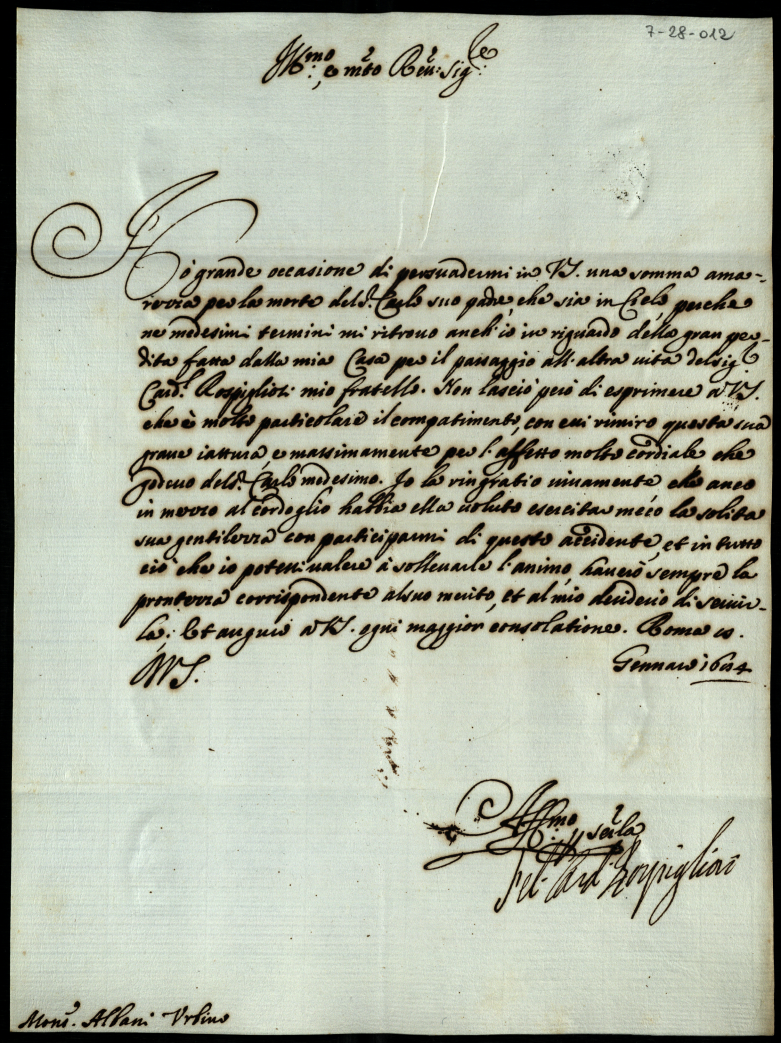 7-28-012
Ill:mo, e m.to Reu: Sig:re
Hò grande occasione di persuadermi in VS. una somma ama-
rezza per la morte del S. Carlo suo padre, che sia in Cielo, perche
ne medesimi termini mi ritrouo anch'io in riguardo della gran per-
dita fatta dalla mia Casa per il passaggio all'altra uita del sig.r
Card.l Rospigliosi mio fratello. Non lascio però di esprimere a VS.
che è molto particolare il compatimento, con cui rimiro questa sua
graue iattura, e massimamente per l'affetto molto cordiale che
godeuo del S. Carlo medesimo. Io la ringratio uiuamente che anco
in mezzo al cordoglio habbia ella uoluto esercitar meco la solita
sua gentilezza con participarmi di questo accidente, et in tutto
ciò che io potessi ualere à solleuarle l'animo, hauerò sempre la
prontezza corrispondente al suo merito, et al mio desiderio di seruir-
la. Et auguro a VS. ogni maggior consolatione. Roma
Gennaro 1684
VS.
Aff:mo per ser.la
Fel. Card. Rospigliosi
Mons.r Albani Vrbino